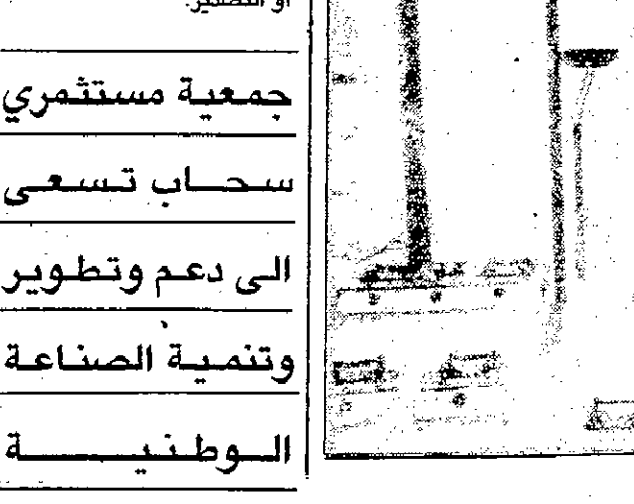 او التصدير.
جمعية مستثمري
سحاب تسعى
الى دعم وتطوير
وتنمية الصناعة
الوطنية